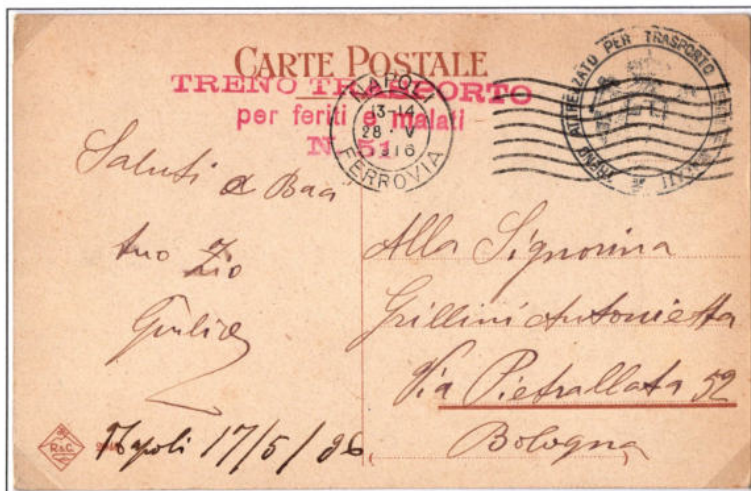 CARTE POSTALE
TRENO TRASPORTO
per feriti e malati
N. 51
NAPOLI
13-14
28 V
1916
FERROVIA
TRENO ATTREZZATO PER TRASPORTO
Saluti & Baci
tuo Zio
Giulio
Napoli 17/5/
Alla Signorina
Grillini Antonietta
Via Pietrallata 52
Bologna
R&C.